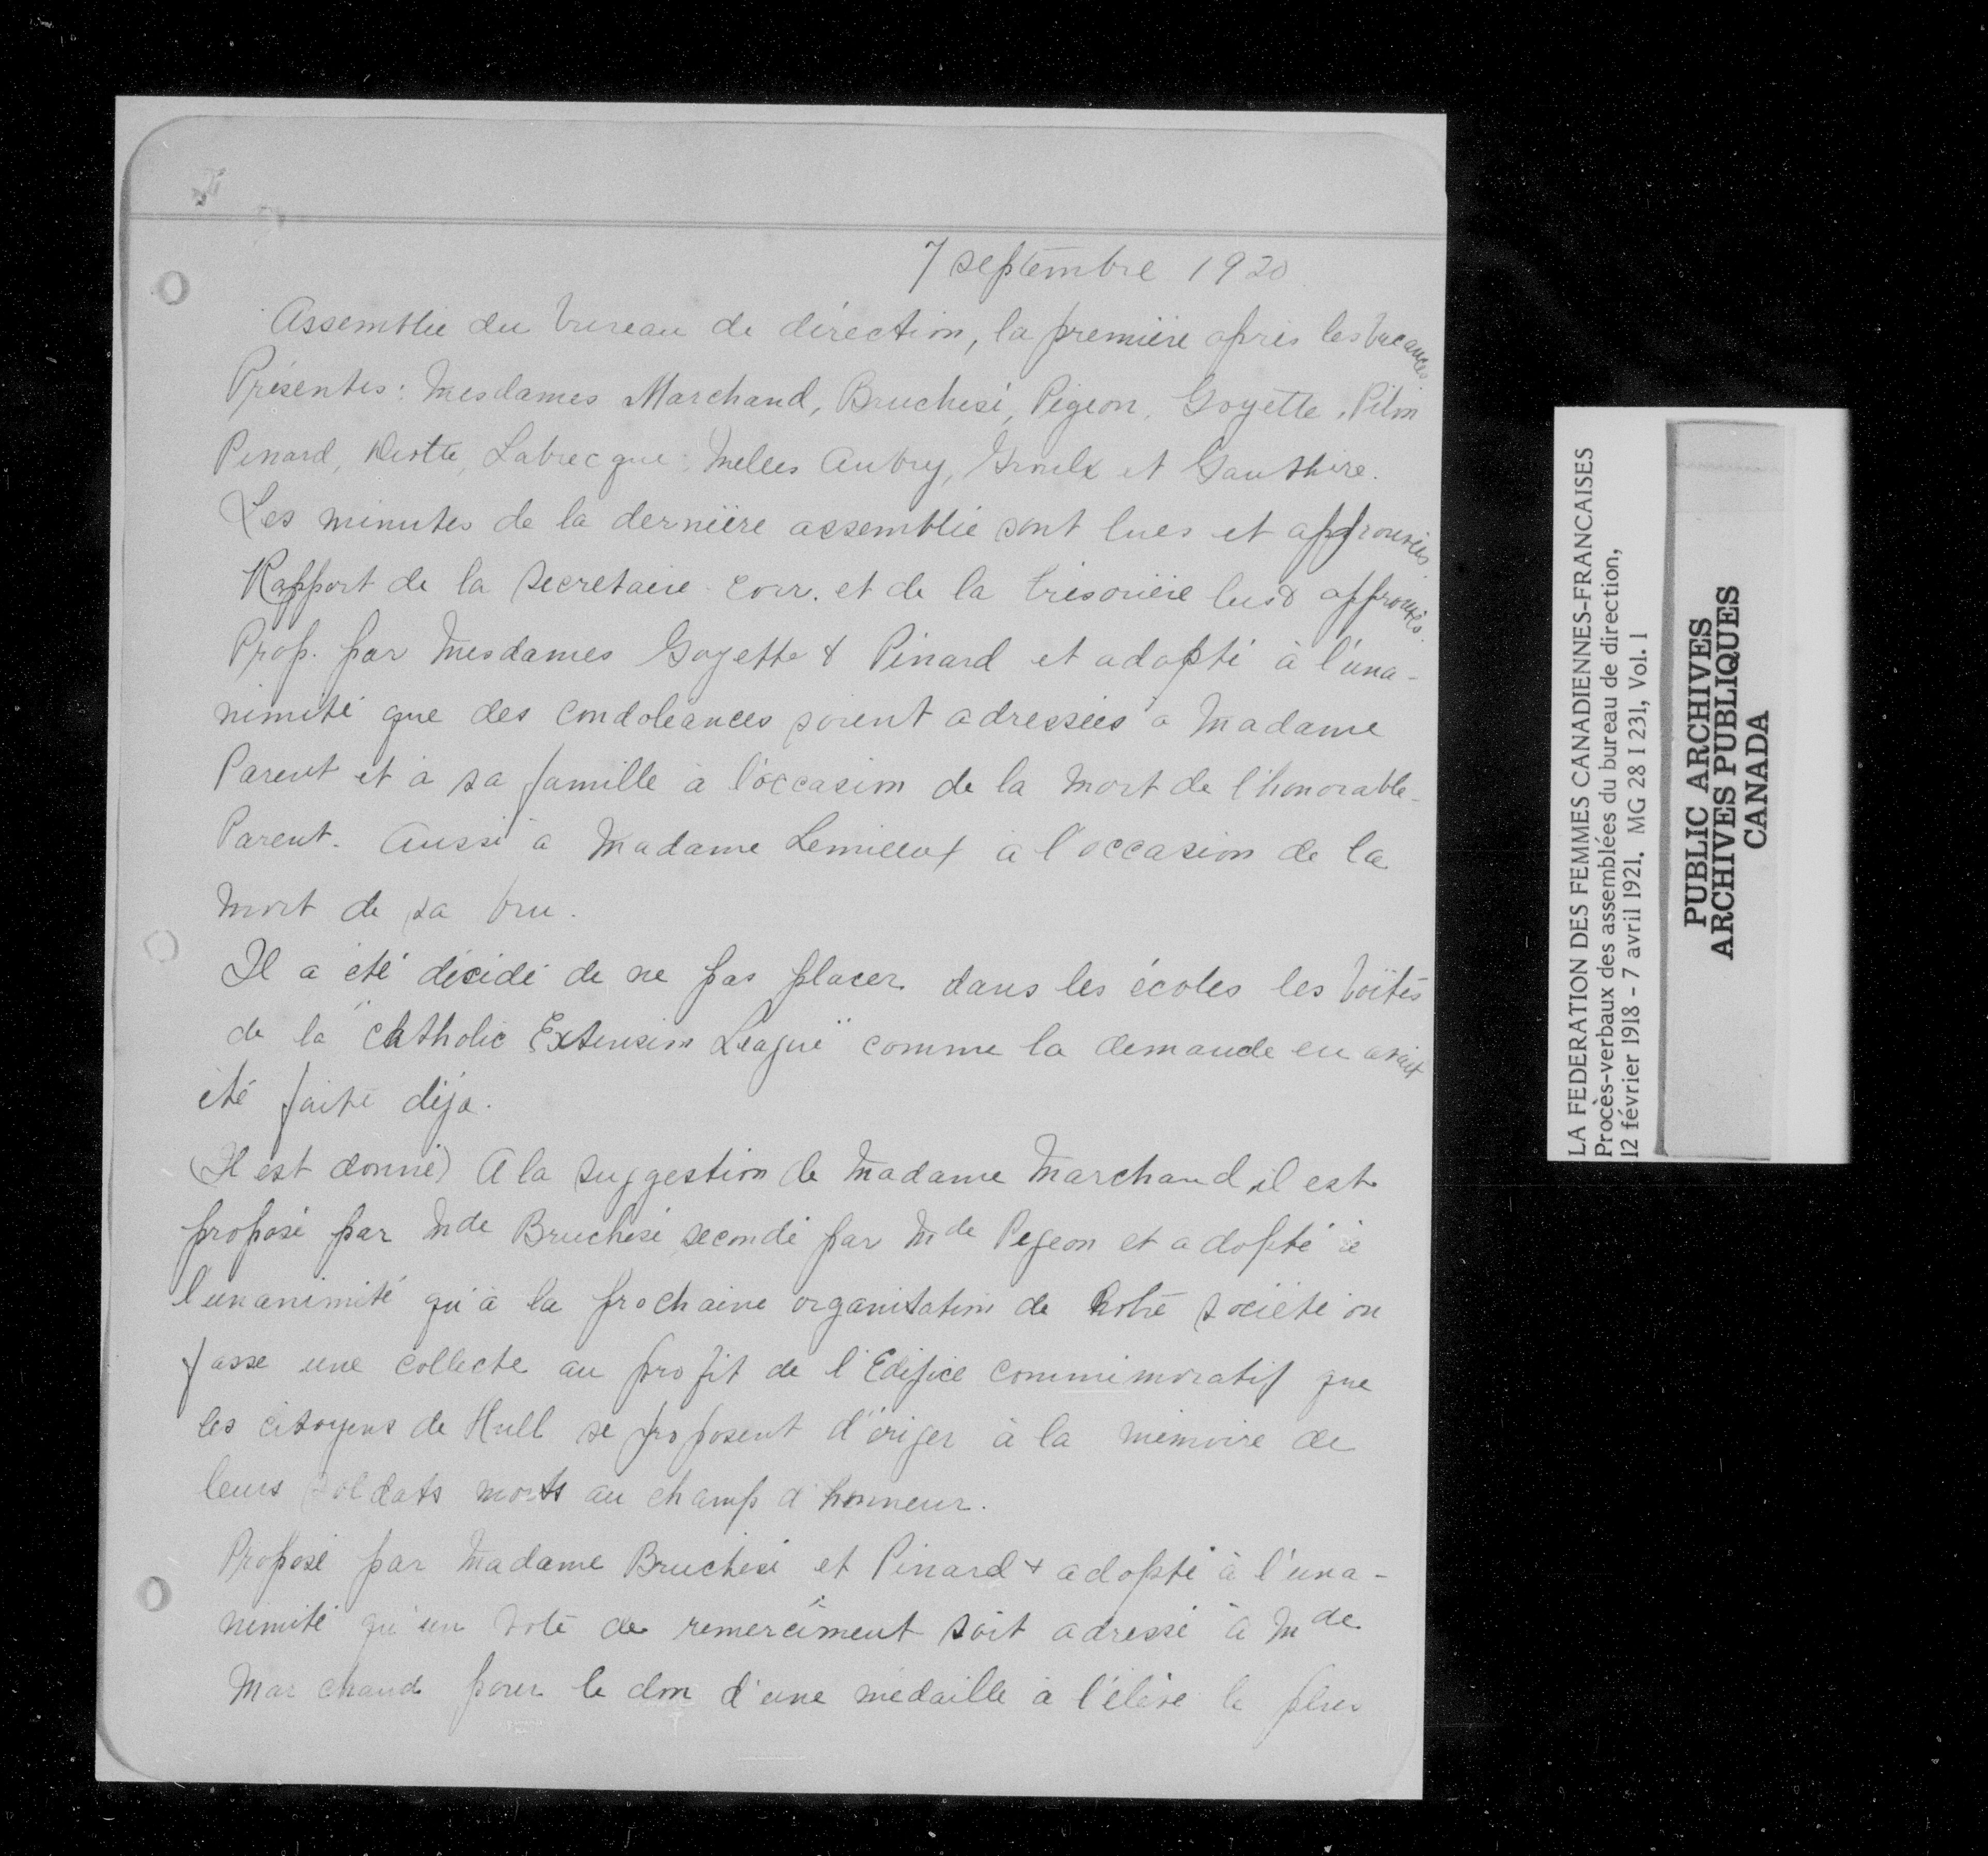 7 septembre 1920
Assemblée du bureau de direction, la première après les vacances.
Présentes: Mesdames Marchand, Bruchesi, Pigeon, Goyette, Pilon
Pinard, Labrecque; Melles Aubry, et Gauthier.
Les minutes de la dernière assemblée sont lues et approuvées.
Rapport de la secretaire corr. et de la trésorière lus & approuvés.
Prop. par Mesdames Goyette & Pinard et adopté à l'una-
nimité que des condoléances soient adressées à Madame
Parent et à sa famille à l'occasion de la mort de l'honorable
Parent. Aussi à Madame Lemieux à l'occasion de la
mort de sa bru.
Il a été décidé de ne pas placer dans les écoles les boîtes
de la "Catholic Extension League" comme la demande en avait
été faite déjà.
(Il est donné) A la suggestion de Madame Marchand, il est
proposé par Mde Bruchesi secondé par Mde Pigeon et adopté à
l'unanimité qu'à la prochaine organisation de notre société on
fasse une collecte au profit de l'Edifice commémoratif que
les citoyens de Hull se proposent d'ériger à la mémoire de
leurs soldats morts au champ d'honneur.
Proposé par Madame Bruchesi et Pinard & adopté à l'una-
nimité qu'un vote de remerciment soit adressé à Mde
Marchand pour le don d'une médaille à l'élève le plus
LA FEDERATION DES FEMMES CANADIENNES-FRANCAISES
Procès-verbaux des assemblées du bureau de direction,
12 février 1918 - 7 avril 1921. MG 28 I 231, Vol. 1
PUBLIC ARCHIVES
ARCHIVES PUBLIQUES
CANADA